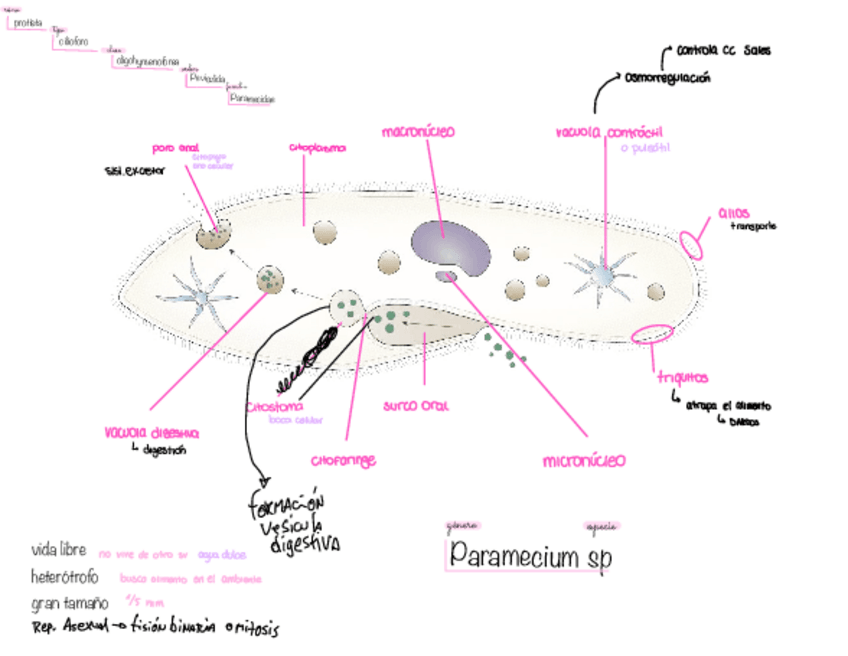 reino
protista
tipo
cilioforo
clase
oligohymenoforea
orden
familia
Paramecidae
controla cc sales
osmorregulación
macronúcleo
vacuola contráctil
o pulsátil
poro anal
citopigio
ano celular
citoplasma
sist. excretor
cilios
transporte
triquitos
atrapa el alimento
citostoma
boca celular
surco oral
vacuola digestiva
digestión
citofaringe
micronúcleo
formación
vesicula
digestiva
género
especie
Paramecium sp
vida libre no vive de otro ser agua dulce
heterótrofo busca alimento en el ambiente
gran tamaño 1/5 mm
Rep. Asexual → fisión binaria o mitosis